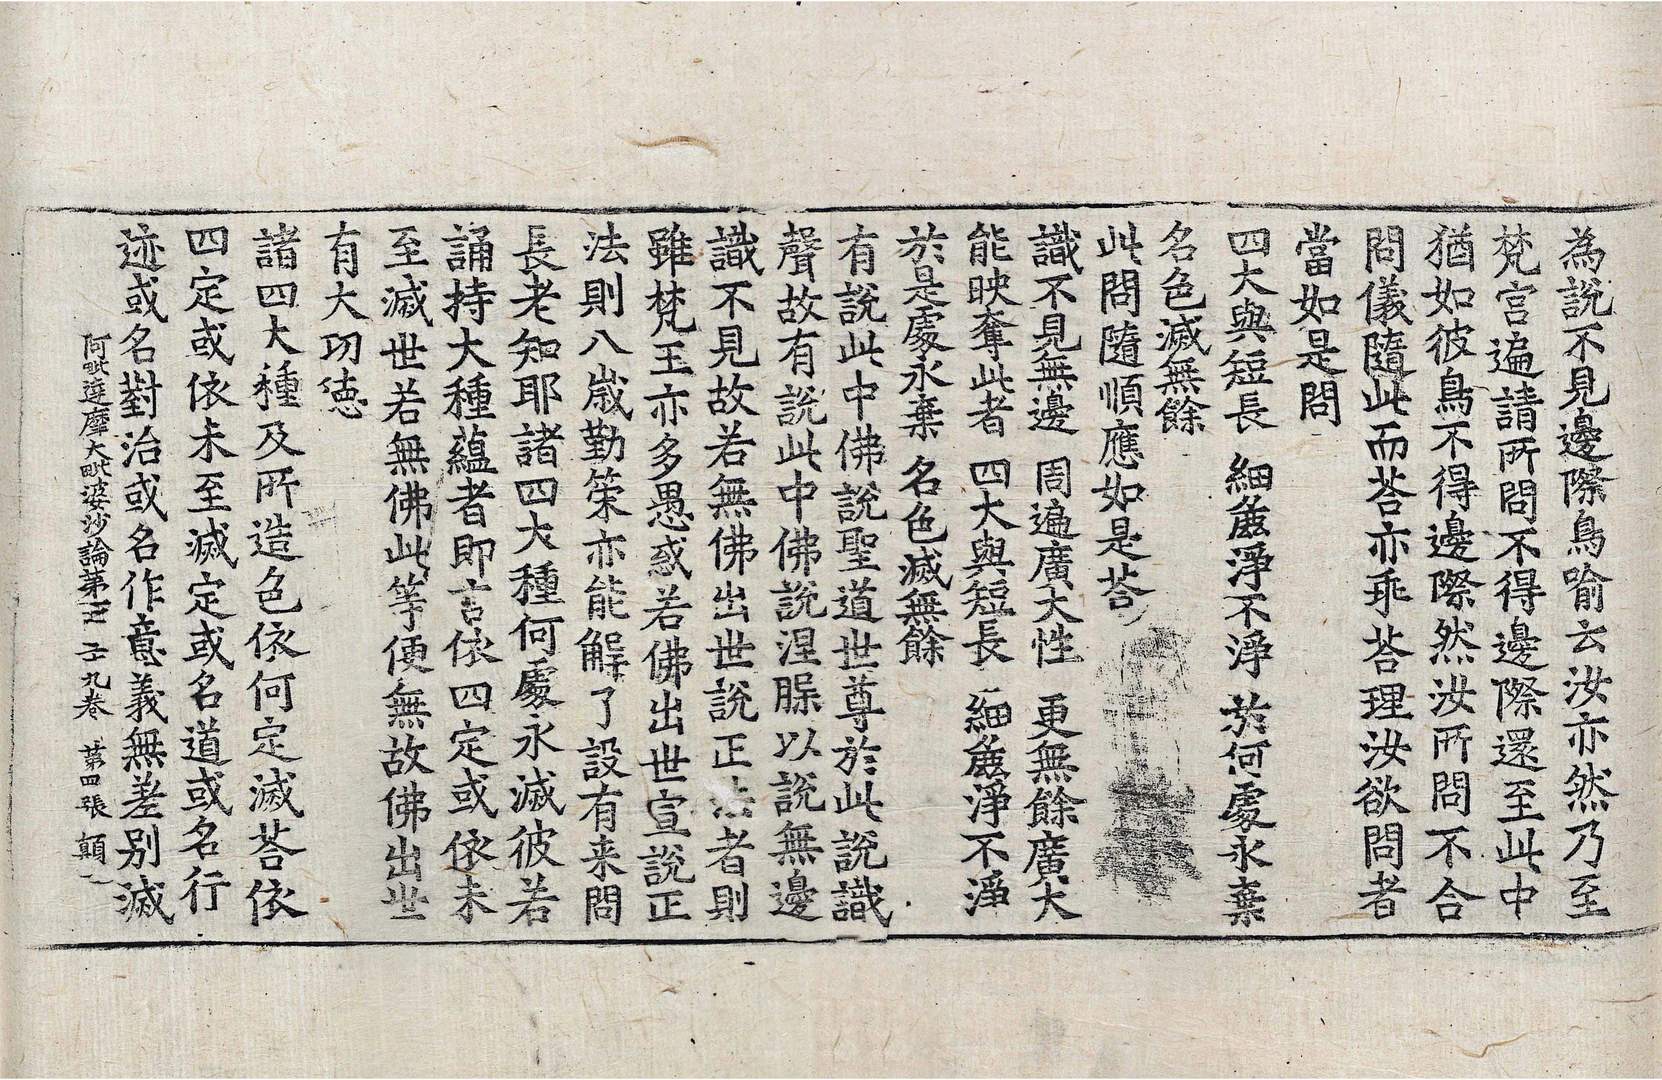 為說不見邊際鳥喻云汝亦然乃至
梵宮遍請所問不得邊際還至此中
猶如彼鳥不得邊際然汝所問不合
問儀隨此而荅亦乖荅理汝欲問者
當如是問
四大與短長　細麁淨不淨　於何處永棄
名色滅無餘
此問隨順應如是荅
識不見無邊　周遍廣大性　更無餘廣大
能映奪此者　四大與短長　細麁淨不淨
於是處永棄　名色滅無餘
有說此中佛說聖道世尊於此說識
聲故有說此中佛說涅槃以說無邊
識不見故若無佛出世說正法者則
雖梵王亦多愚惑若佛出世宣說正
法則八歲勤策亦能解了設有来問
長老知耶諸四大種何處永滅彼若
誦持大種蘊者即言依四定或依未
至滅世若無佛此等便無故佛出世
有大功徳
諸四大種及所造色依何定滅荅依
四定或依未至滅定或名道或名行
迹或名對治或名作意義無差別滅
阿毗達摩大毗婆沙論第一百二十九卷　苐四張　顛